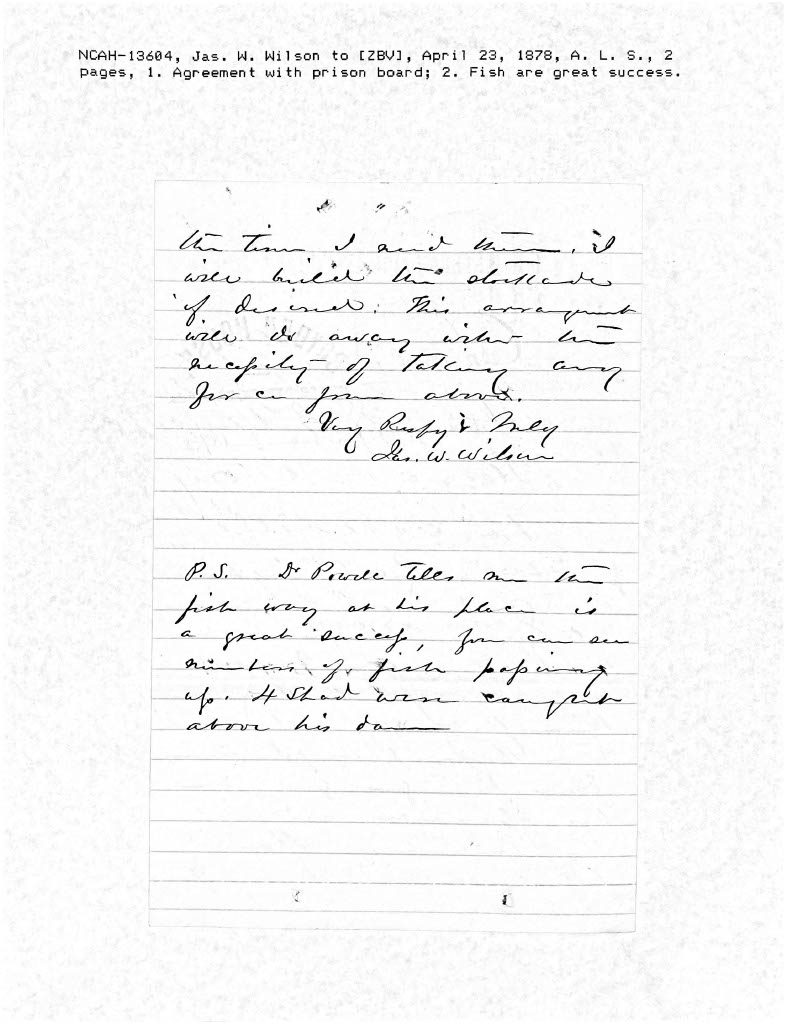 NCAH-13604, Jas. W. Wilson to [ZBV], April 23, 1878, A. L. S., 2
pages, 1. Agreement with prison board; 2. Fish are great success.
"
the time I send them. I
will build the stockade
if desired. This arrangement
will do away with the
necessity of taking any
force from above.
Very Respy & Truly
Jas. W. Wilson
P.S. Dr Powell tells me the
fish way at his place is
a great success, you can see
numbers of fish passing
up. 4 Shad were caught
above his dam